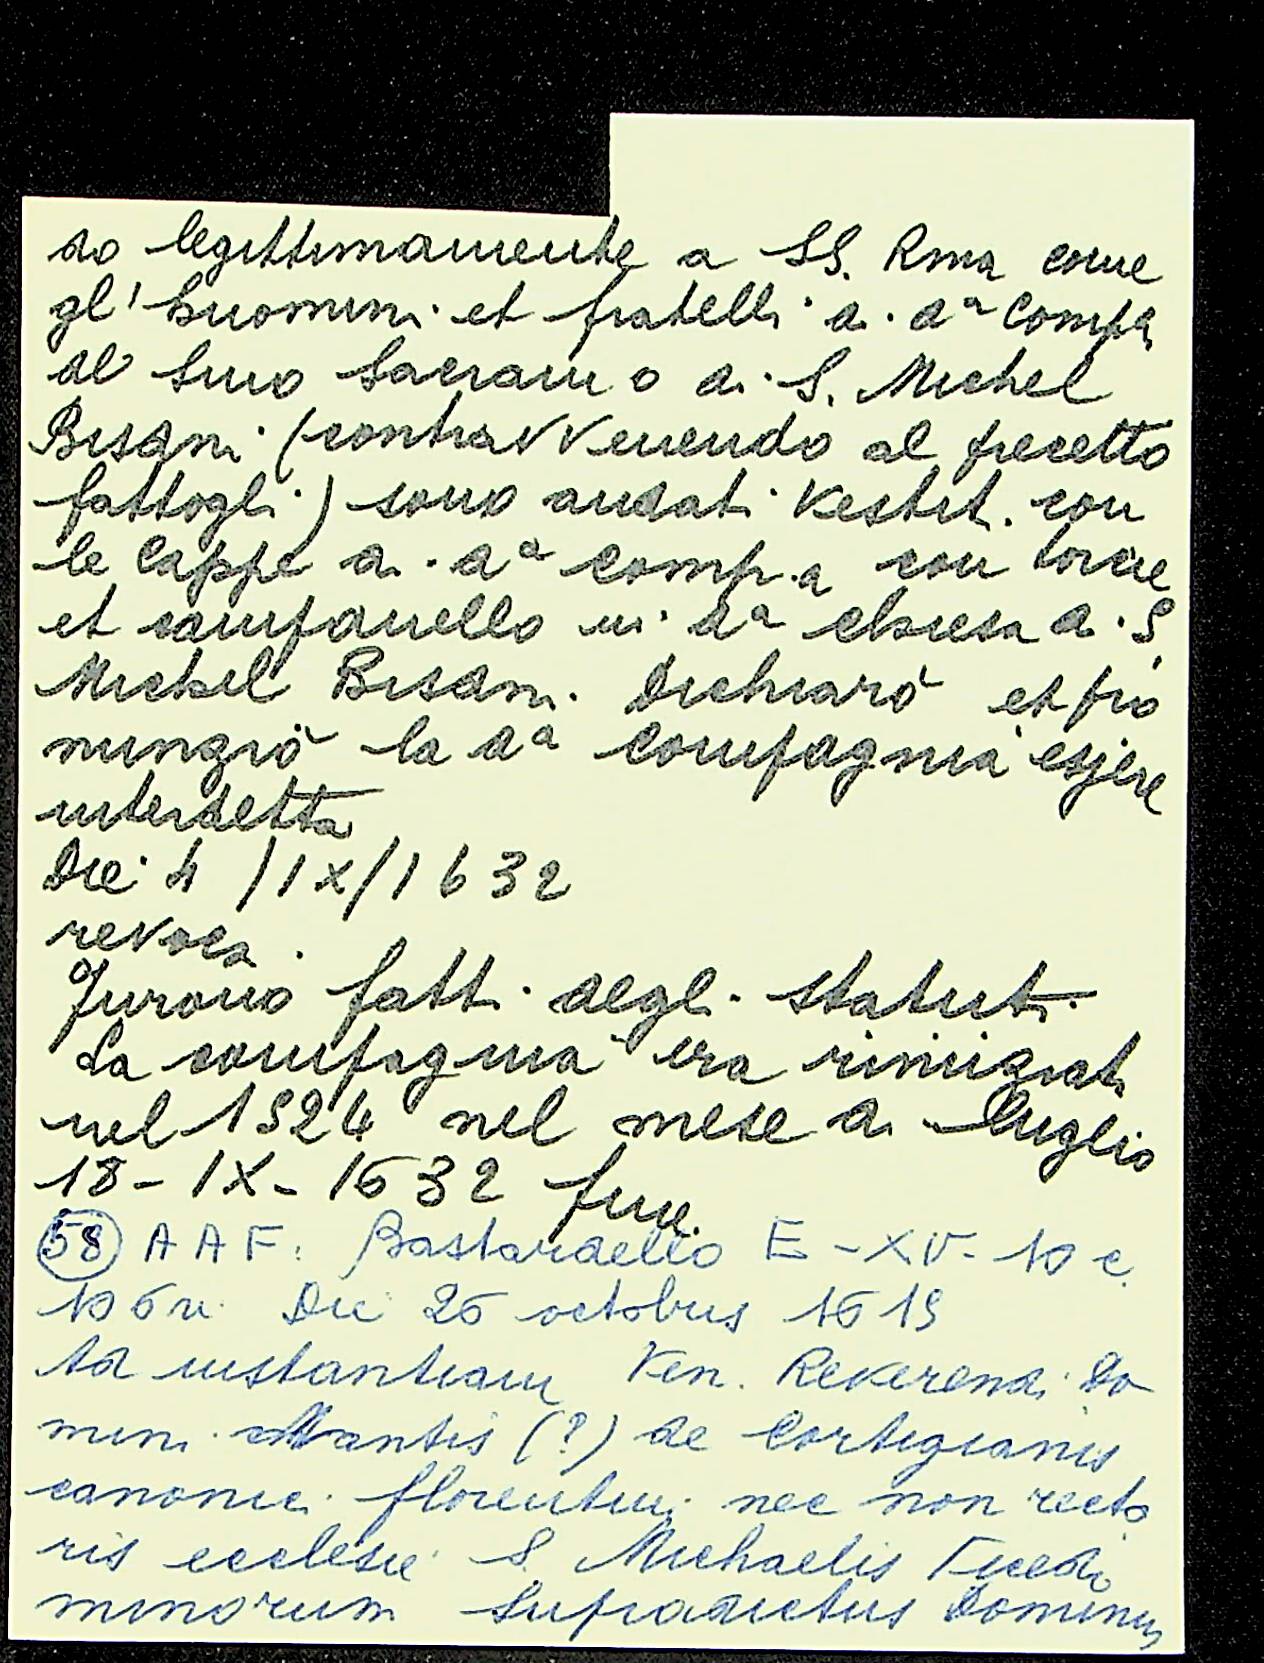 do legittimamente a SS. Rma come
gl' huomini et fratelli di da Compa
del Smo Sacramo di S. Michel
Bisdni (contravvenendo al precetto
fattogli) sono andati vestit. con
le Cappe di da comp.a con torcie
et campanello in da chiesa di S.
Michel Bisdni. Dichiarò et pro
nunziò la da compagnia essere
interdetta
Die 4/IX/1632
revoca.
Furono fatti degli statuti
La compagnia era
nel 1524 nel mese di luglio
18-IX-1632
(58) AAF: Bastardello E-XV-10 c.
106v. Die 26 octobris 1619
Ad instantiam Ven. Reverendi Do
mini Mantis (?) de Cortigianis
canonici florentini nec non recto
ris ecclesie S. Michaelis Vicedo
minorum supradictus Dominus